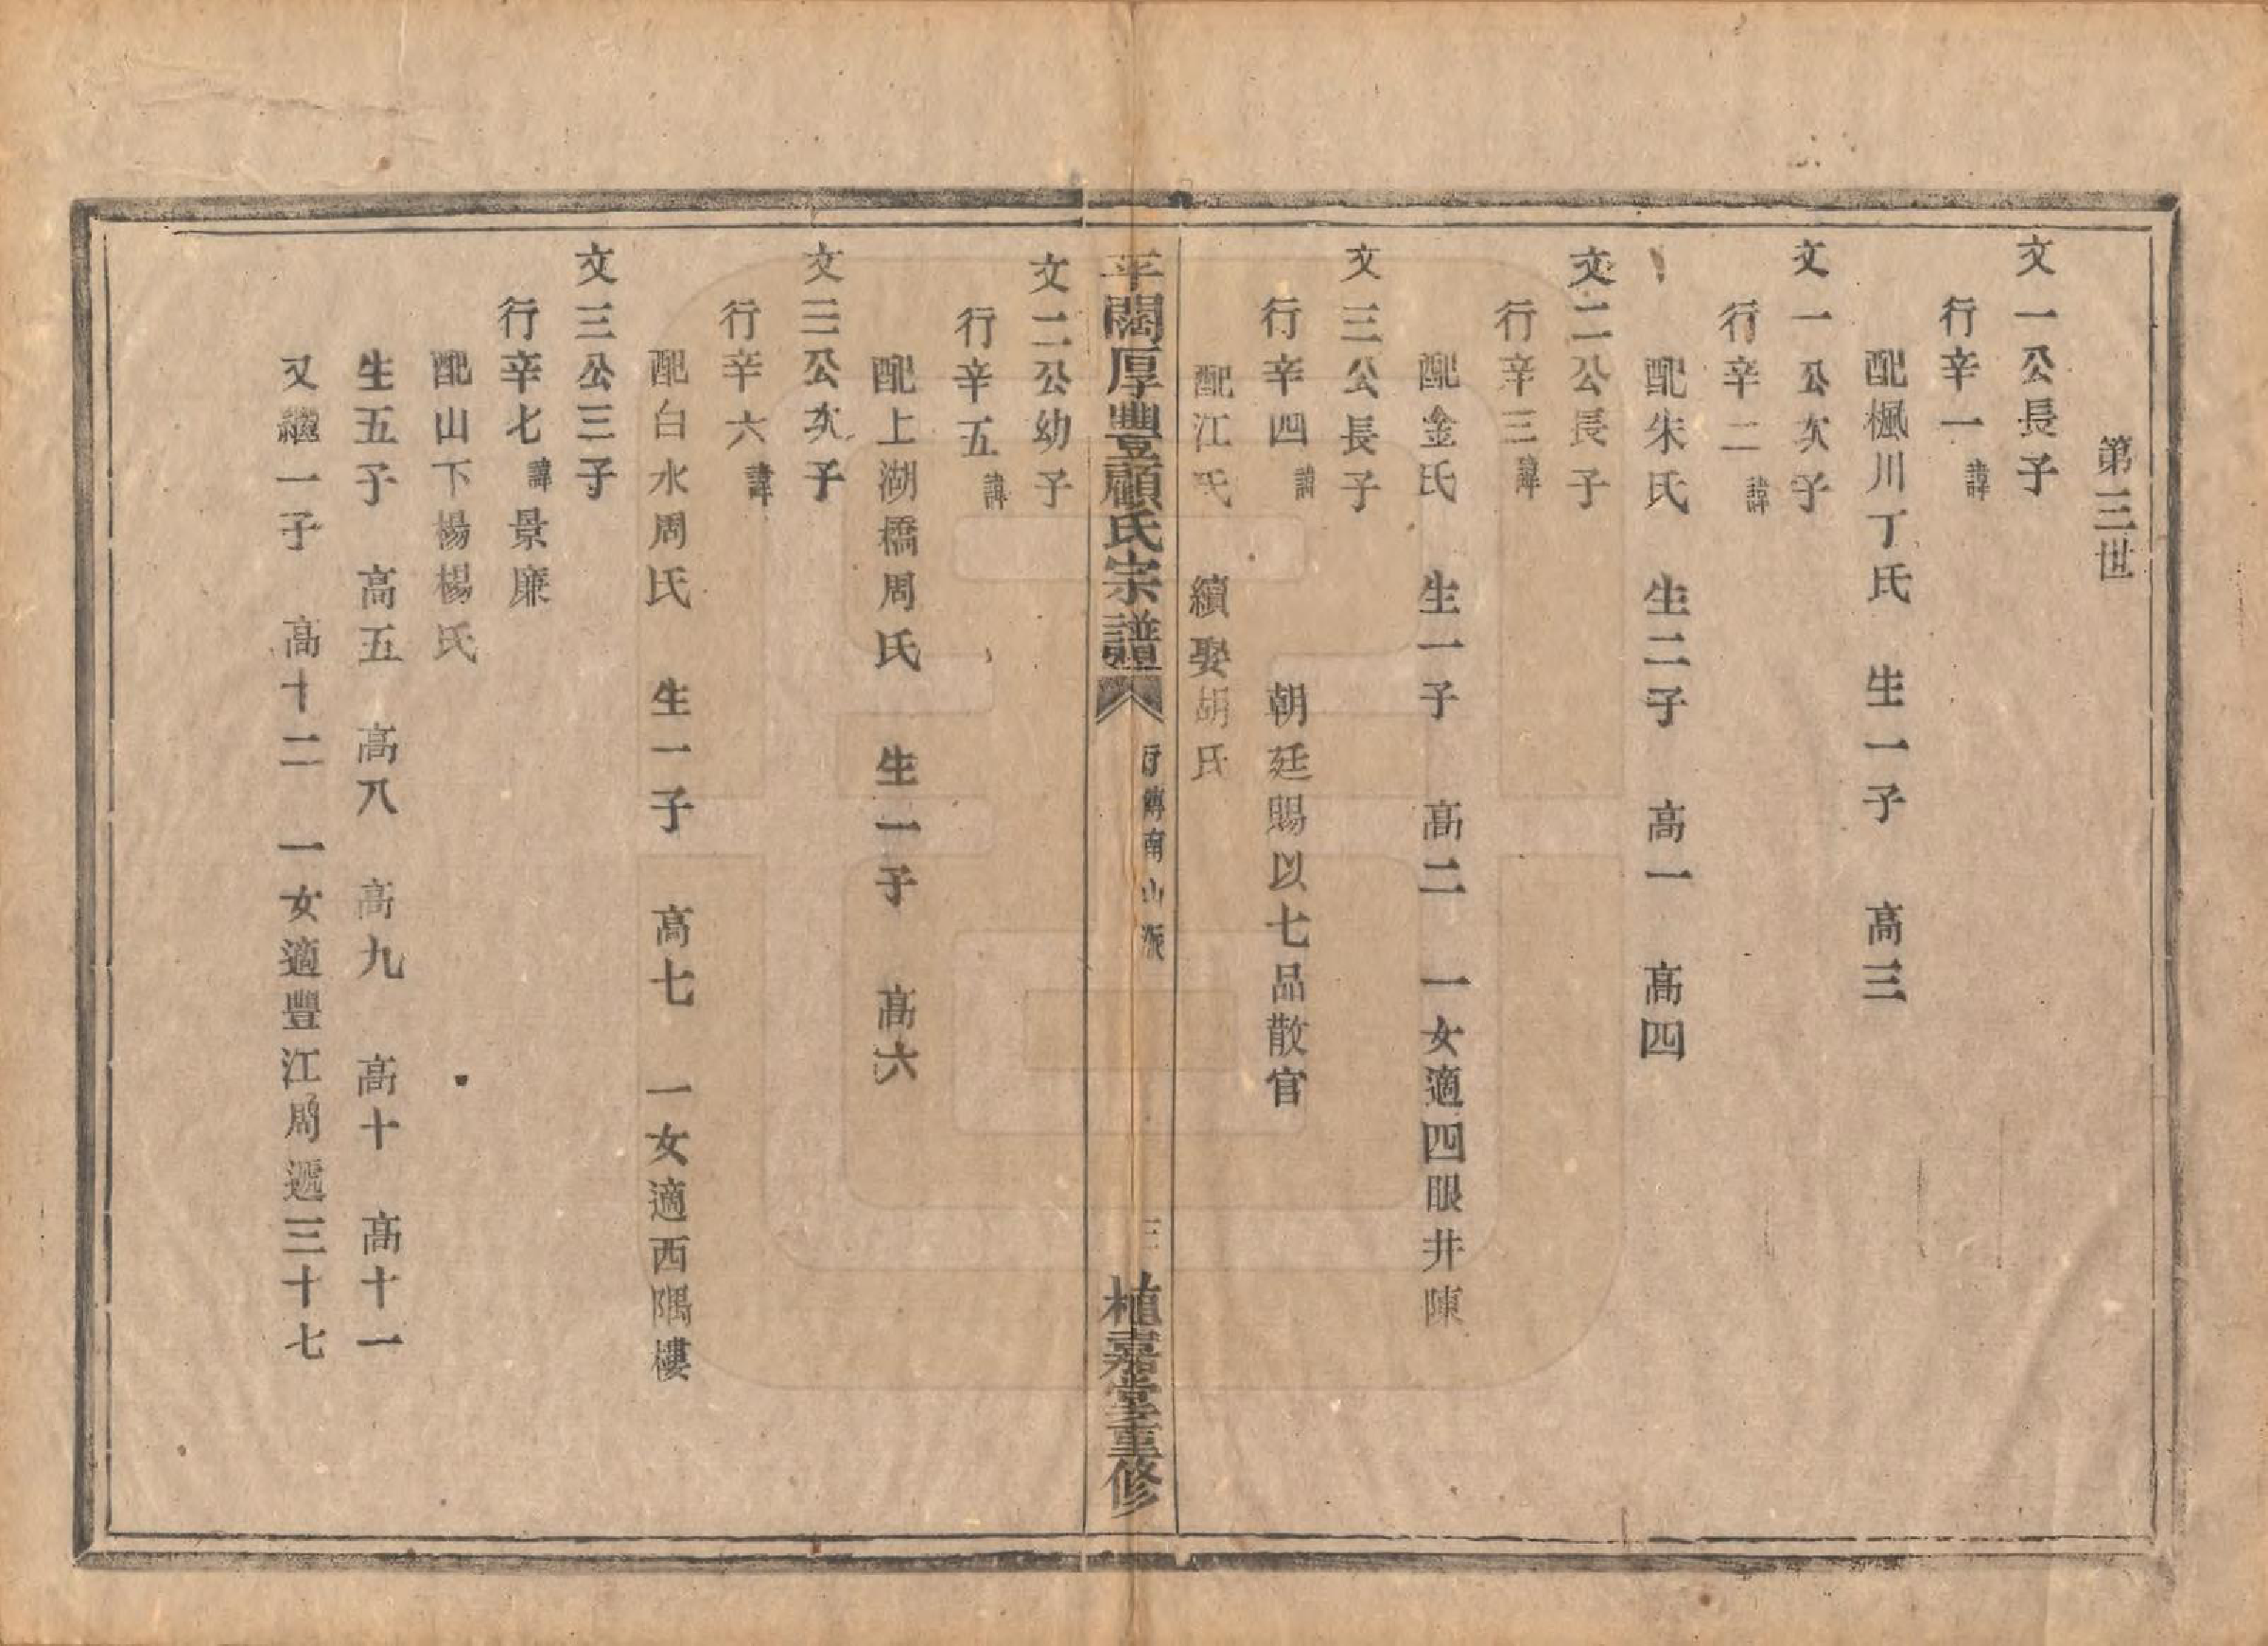 第三世
文一公長子
行辛一諱
配楓川丁氏 生一子 高三
文一公次子
行辛二諱
配朱氏 生二子 高一 高四
文二公長子
行辛三諱
配金氏 生一子 高二 一女適四眼井陳
文三公長子
行辛四諱 朝廷賜以七品散官
配江氏 續娶胡氏
平闊厚豐顧氏宗譜 行傳南山派 三 植嘉堂重修
文二公幼子
行辛五諱
配上湖橋周氏 生一子 高六
文三公次子
行辛六諱
配白水周氏 生一子 高七 一女適西隅樓
文三公三子
行辛七諱景廉
配山下楊楊氏
生五子 高五 高八 高九 高十 高十一
又繼一子 高十二 一女適豐江周遞三十七